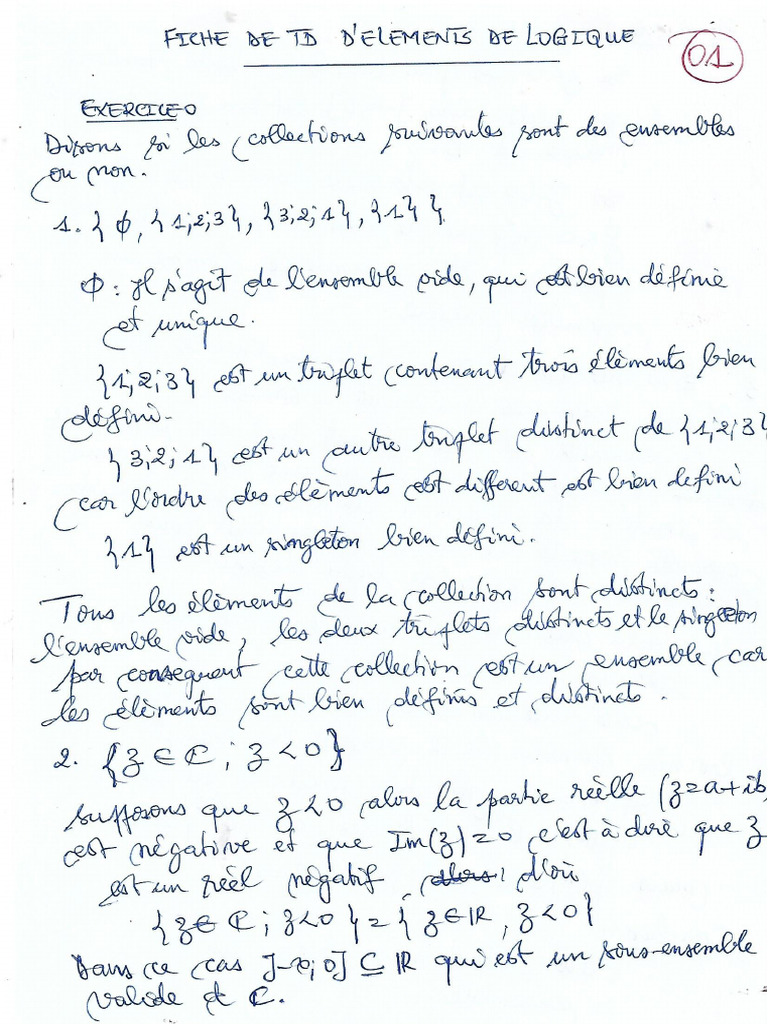 FICHE DE TD D'ELEMENTS DE LOGIQUE
01
EXERCICE 0
Disons si les collections suivantes sont des ensembles
ou non.
1. { ϕ, {1;2;3}, {3;2;1}, {1} }
ϕ : Il s'agit de l'ensemble vide, qui est bien définie
et unique.
{1;2;3} est un triplet contenant trois élèments bien
défini.
{3;2;1} est un autre triplet distinct de {1;2;3}
car l'ordre des élèments est different est bien defini
{1} est un singleton bien défini.
Tous les élèments de la collection sont distincts :
l'ensemble vide, les deux triplets distincts et le singleton
par consequent cette collection est un ensemble car
les élèments sont bien définis et distincts.
2. {z ∈ ℂ ; z < 0}
supposons que z < 0 alors la partie réelle (z = a + ib)
est négative et que Im(z) = 0 c'est à dire que z
est un réel négatif d'où
{z ∈ ℂ ; z < 0} = {z ∈ ℝ, z < 0}
Dans ce cas ]-∞; 0] ⊆ ℝ qui est un sous-ensemble
valide et ℂ.